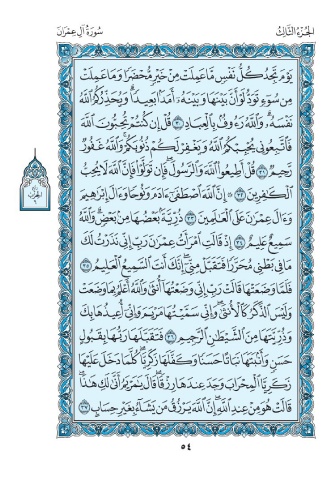 الجزء الثالث
سورة آل عمران
يَوْمَ تَجِدُ كُلُّ نَفْسٍ مَّا عَمِلَتْ مِنْ خَيْرٍ مُّحْضَرًا وَمَا عَمِلَتْ
مِن سُوٓءٍ تَوَدُّ لَوْ أَنَّ بَيْنَهَا وَبَيْنَهُۥٓ أَمَدًۢا بَعِيدًا ۗ وَيُحَذِّرُكُمُ ٱللَّهُ
نَفْسَهُۥ ۗ وَٱللَّهُ رَءُوفٌۢ بِٱلْعِبَادِ ٣٠ قُلْ إِن كُنتُمْ تُحِبُّونَ ٱللَّهَ
فَٱتَّبِعُونِى يُحْبِبْكُمُ ٱللَّهُ وَيَغْفِرْ لَكُمْ ذُنُوبَكُمْ ۗ وَٱللَّهُ غَفُورٌ
رَّحِيمٌ ٣١ قُلْ أَطِيعُوا۟ ٱللَّهَ وَٱلرَّسُولَ ۖ فَإِن تَوَلَّوْا۟ فَإِنَّ ٱللَّهَ لَا يُحِبُّ
ٱلْكَٰفِرِينَ ٣٢ ۞ إِنَّ ٱللَّهَ ٱصْطَفَىٰٓ ءَادَمَ وَنُوحًا وَءَالَ إِبْرَٰهِيمَ
وَءَالَ عِمْرَٰنَ عَلَى ٱلْعَٰلَمِينَ ٣٣ ذُرِّيَّةًۢ بَعْضُهَا مِنۢ بَعْضٍ ۗ وَٱللَّهُ
سَمِيعٌ عَلِيمٌ ٣٤ إِذْ قَالَتِ ٱمْرَأَتُ عِمْرَٰنَ رَبِّ إِنِّى نَذَرْتُ لَكَ
مَا فِى بَطْنِى مُحَرَّرًا فَتَقَبَّلْ مِنِّىٓ ۖ إِنَّكَ أَنتَ ٱلسَّمِيعُ ٱلْعَلِيمُ ٣٥
فَلَمَّا وَضَعَتْهَا قَالَتْ رَبِّ إِنِّى وَضَعْتُهَآ أُنثَىٰ وَٱللَّهُ أَعْلَمُ بِمَا وَضَعَتْ
وَلَيْسَ ٱلذَّكَرُ كَٱلْأُنثَىٰ ۖ وَإِنِّى سَمَّيْتُهَا مَرْيَمَ وَإِنِّىٓ أُعِيذُهَا بِكَ
وَذُرِّيَّتَهَا مِنَ ٱلشَّيْطَٰنِ ٱلرَّجِيمِ ٣٦ فَتَقَبَّلَهَا رَبُّهَا بِقَبُولٍ
حَسَنٍ وَأَنۢبَتَهَا نَبَاتًا حَسَنًا وَكَفَّلَهَا زَكَرِيَّا ۖ كُلَّمَا دَخَلَ عَلَيْهَا
زَكَرِيَّا ٱلْمِحْرَابَ وَجَدَ عِندَهَا رِزْقًا ۖ قَالَ يَٰمَرْيَمُ أَنَّىٰ لَكِ هَٰذَا ۖ
قَالَتْ هُوَ مِنْ عِندِ ٱللَّهِ ۖ إِنَّ ٱللَّهَ يَرْزُقُ مَن يَشَآءُ بِغَيْرِ حِسَابٍ ٣٧
٥٤